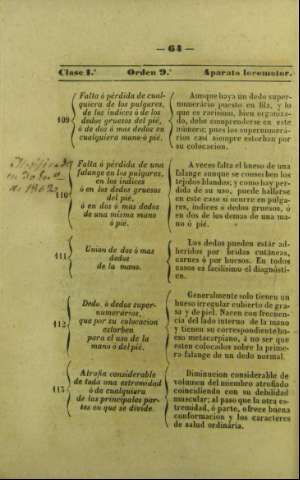 — 64 —
Clase 1.ª Orden 9.º Aparato locomotor.
109
Falta ó pérdida de cual-
quiera de los pulgares,
de los índices ó de los
dedos gruesos del pié,
ó de dos ó mas dedos en
cualquiera mano ó pié.
Aunque haya un dedo super-
numerário puesto en fila, y lo
que es rarísimo, bien organiza-
do, debe comprenderse en este
número; pues los supernumerá-
rios casi siempre estorban por
su colocacion.
110
Falta ó pérdida de una
falange en los pulgares,
en los índices
ó en los dedos gruesos
del pié,
ó en dos ó mas dedos
de una misma mano
ó pié.
A veces falta el hueso de una
falange aunque se conserben los
tejidos blandos; y como hay per-
dida de su uso, puede hallarse
en este caso si ocurre en pulga-
res, índices ó dedos gruesos, ó
en dos de los demas de una ma-
no ó pié.
de 1862
111
Union de dos ó mas
dedos
de la mano.
Los dedos pueden estar ad-
heridos por bridas cutáneas,
carnes ó por huesos. En todos
casos es facilísimo el diagnósti-
co.
112
Dedo, ó dedos super-
numerários,
que por su colocacion
estorben
para el uso de la
mano ó del pié.
Generalmente solo tienen un
hueso irregular cubierto de gra-
sa y de piel. Nacen con frecuen-
cia del lado interno de la mano
y tienen su correspondiente hue-
so metacarpiano, á no ser que
esten colocados sobre la prime-
ra falange de un dedo normal.
113
Atrofia considerable
de toda una estremidad
ó de cualquiera
de las principales par-
tes en que se divide.
Diminucion considerable de
volúmen del miembro atrofiado
coincidiendo con su debilidad
muscular; al paso que la otra es-
tremidad, ó parte, ofrece buena
conformacion y los caracteres
de salud ordinária.